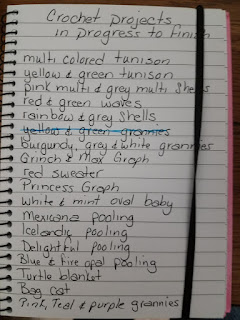 Crochet projects
in progress to finish
multi colored tunison
yellow & green tunison
pink multi & grey multi shells
red & green waves
rainbow & grey shells
yellow & green grannies
Burgundy, grey & white grannies
Grinch & Max Graph
red sweater
Princess Graph
White & mint oval baby
Mexicana pooling
Icelandic pooling
Delightful pooling
Blue & fire opal pooling
Turtle blanket
Bag cat
Pink, Teal & purple grannies